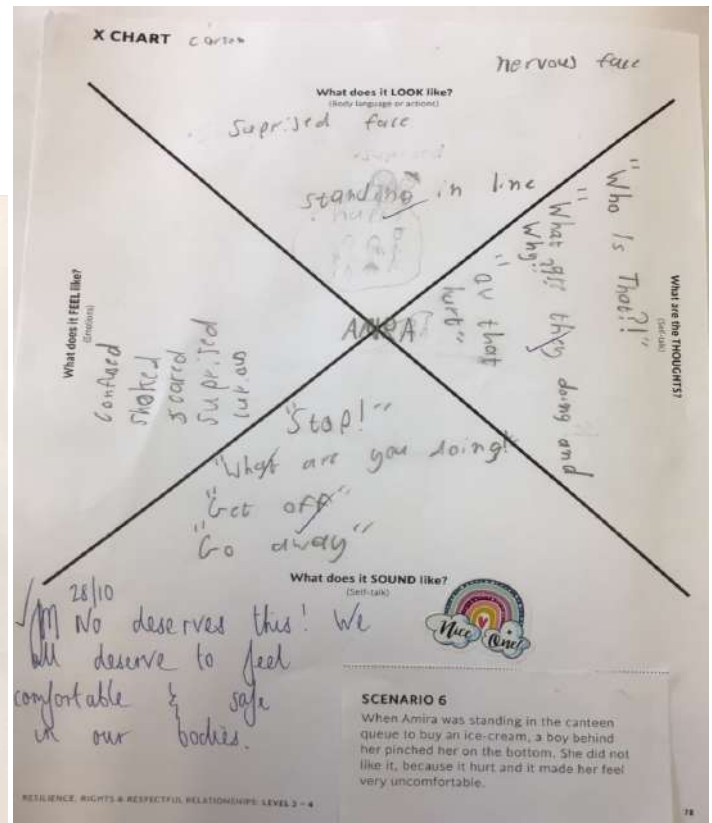 X CHART Carson
nervous face
What does it LOOK like?
(Body language or actions)
Suprised face
standing in line
What does it FEEL like?
(Emotions)
confused
shoked
scared
suprised
What are the THOUGHTS?
(Self-talk)
"Who Is That?!"
"What are they doing and
Why"
"ow that
hurt"
"Stop!"
"What are you doing!"
"Get off"
"Go away"
What does it SOUND like?
(Self-talk)
28/10
No deserves this! We
all deserve to feel
comfortable & safe
in our bodies.
Nice One!
SCENARIO 6
When Amira was standing in the canteen
queue to buy an ice-cream, a boy behind
her pinched her on the bottom. She did not
like it, because it hurt and it made her feel
very uncomfortable.
RESILIENCE, RIGHTS & RESPECTFUL RELATIONSHIPS: LEVEL 3 – 4
78